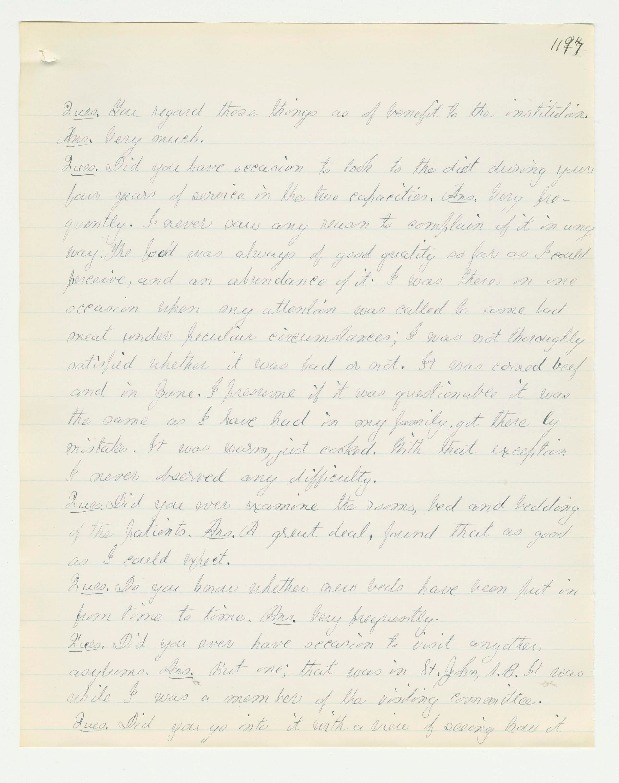 1197
Ques. You regard those things as of benefit to the institution.
Ans. Very much.
Ques. Did you have occasion to look to the diet during your
four years of service in the two capacities. Ans. Very fre-
quently. I never saw any reason to complain of it in any
way. The food was always of good quality so far as I could
perceive, and an abundance of it. I was there on one
occasion when my attention was called to some bad
meat under peculiar circumstances; I was not thoroughly
satisfied whether it was bad or not. It was corned beef
and in June. I presume if it was questionable it was
the same as I have had in my family, got there by
mistake. It was warm, just cooked. With that exception
I never observed any difficulty.
Ques. Did you ever examine the rooms, bed and bedding
of the patients. Ans. A great deal, found that as good
as I could expect.
Ques. Do you know whether new beds have been put in
from time to time. Ans. Very frequently.
Ques. Did you ever have occasion to visit any other
asylums. Ans. But one; that was in St. John, N.B. It was
while I was a member of the visiting committee.
Ques. Did you go into it with a view of seeing how it